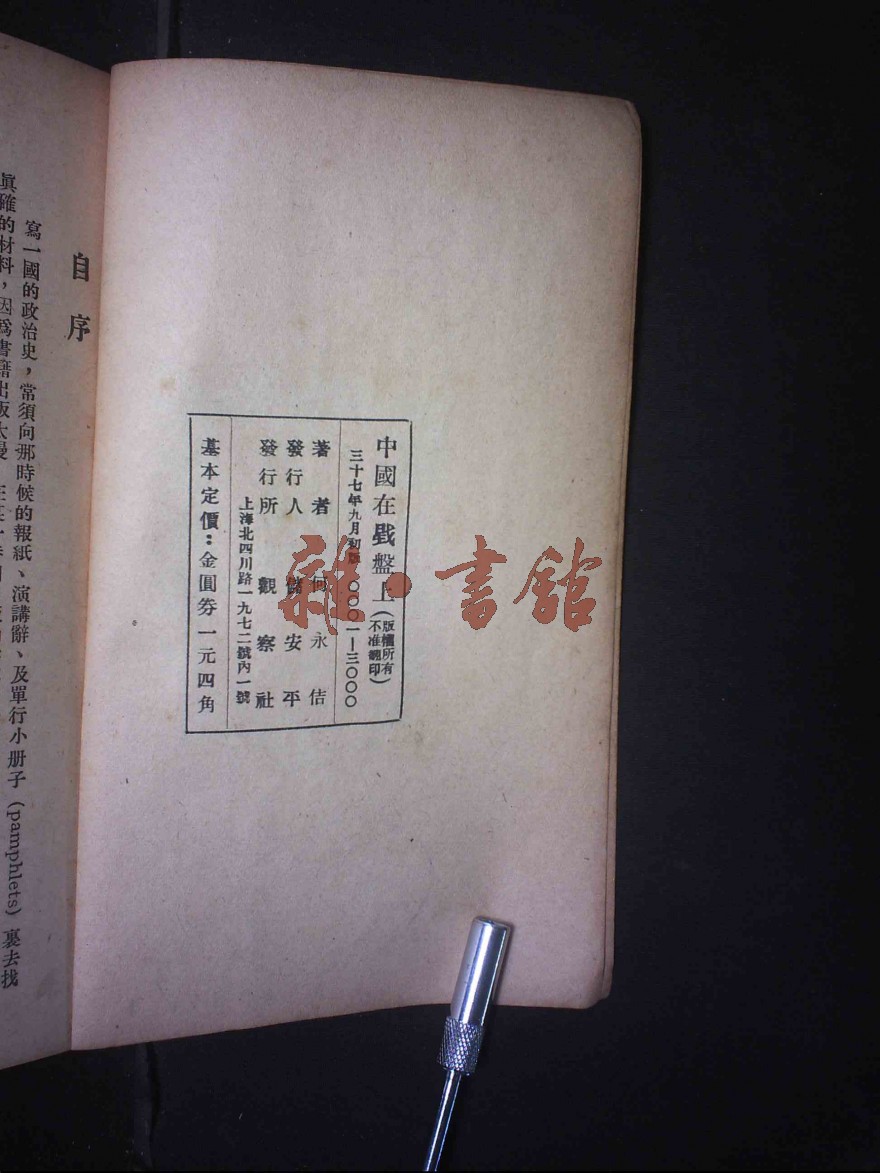 中國在戥盤上(版權所有不准翻印)
三十七年九月初版 〇〇〇一—三〇〇〇
著者 何永佶
發行人 儲安平
發行所 觀察社
上海北四川路一九七二號內一號
基本定價：金圓券一元四角
雜·書館
自序
寫一國的政治史，常須向那時候的報紙、演講辭、及單行小册子（pamphlets）裏去找
眞確的材料，因爲書籍出版太慢